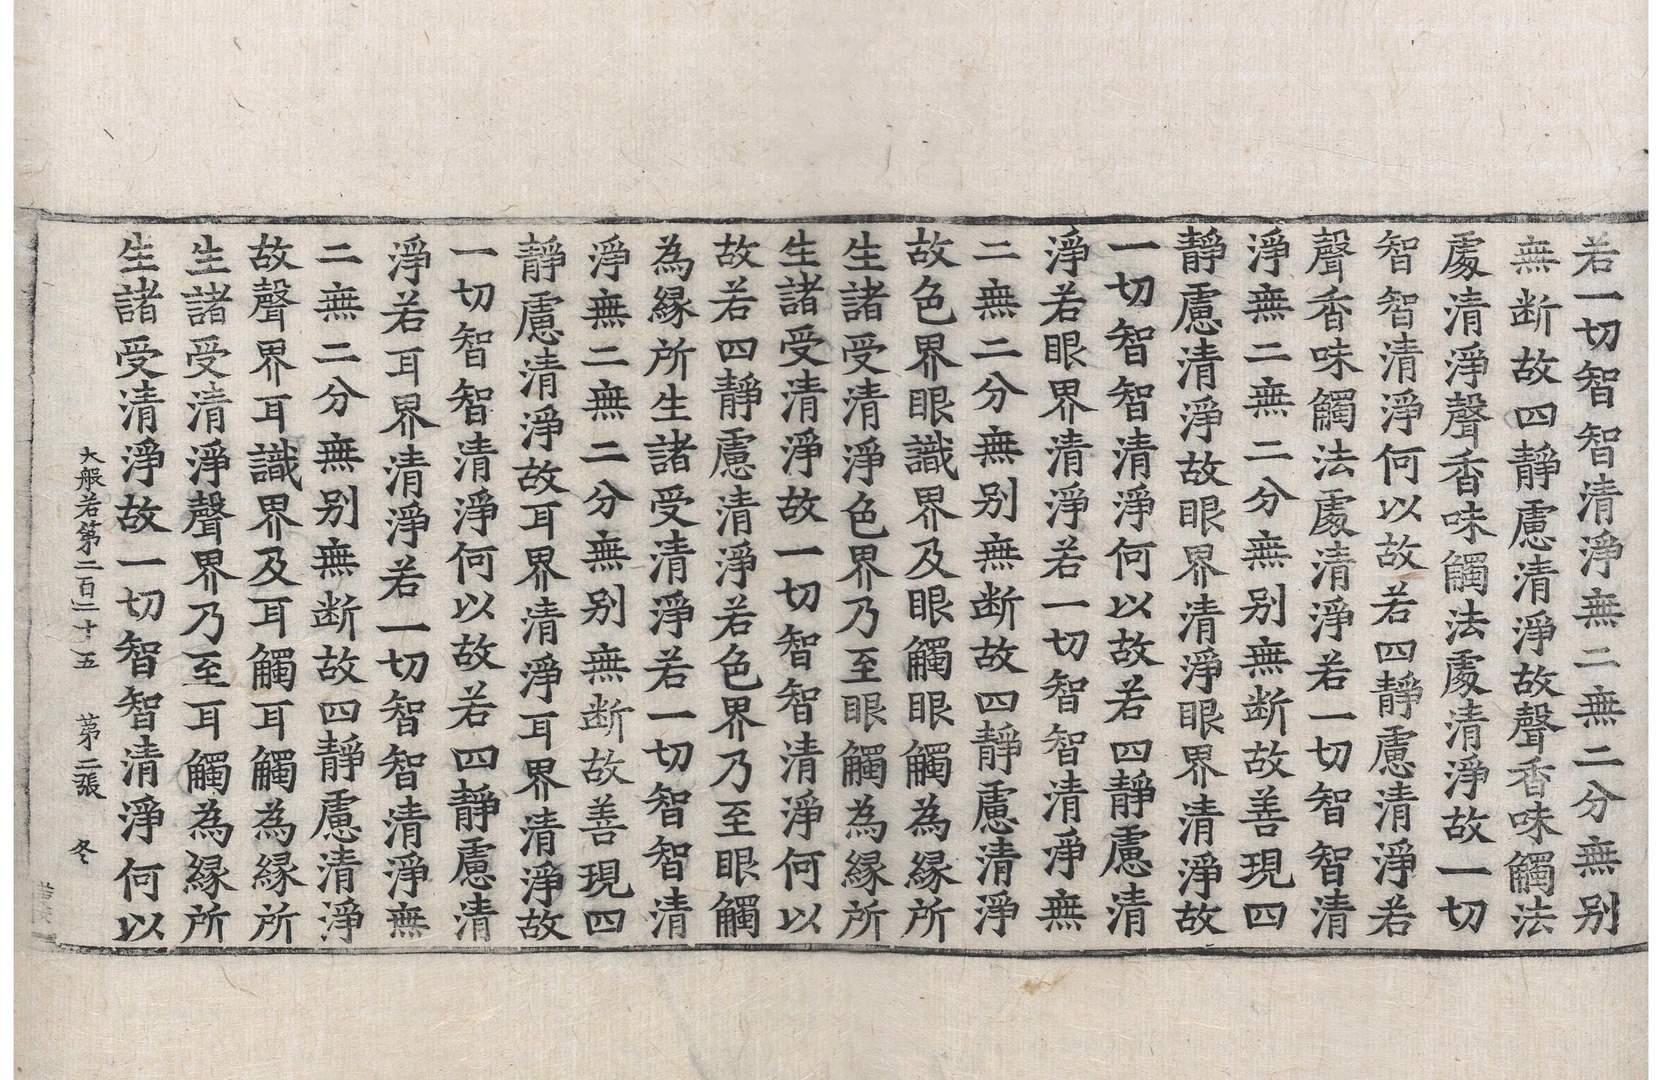 若一切智智清淨無二無二分無别
無断故四靜慮清淨故聲香味觸法
處清淨聲香味觸法處清淨故一切
智智清淨何以故若四靜慮清淨若
聲香味觸法處清淨若一切智智清
淨無二無二分無别無断故善現四
靜慮清淨故眼界清淨眼界清淨故
一切智智清淨何以故若四靜慮清
淨若眼界清淨若一切智智清淨無
二無二分無别無断故四靜慮清淨
故色界眼識界及眼觸眼觸為縁所
生諸受清淨色界乃至眼觸為縁所
生諸受清淨故一切智智清淨何以
故若四靜慮清淨若色界乃至眼觸
為縁所生諸受清淨若一切智智清
淨無二無二分無别無断故善現四
靜慮清淨故耳界清淨耳界清淨故
一切智智清淨何以故若四靜慮清
淨若耳界清淨若一切智智清淨無
二無二分無别無断故四靜慮清淨
故聲界耳識界及耳觸耳觸為縁所
生諸受清淨聲界乃至耳觸為縁所
生諸受清淨故一切智智清淨何以
大般若第二百二十五 第二張 冬